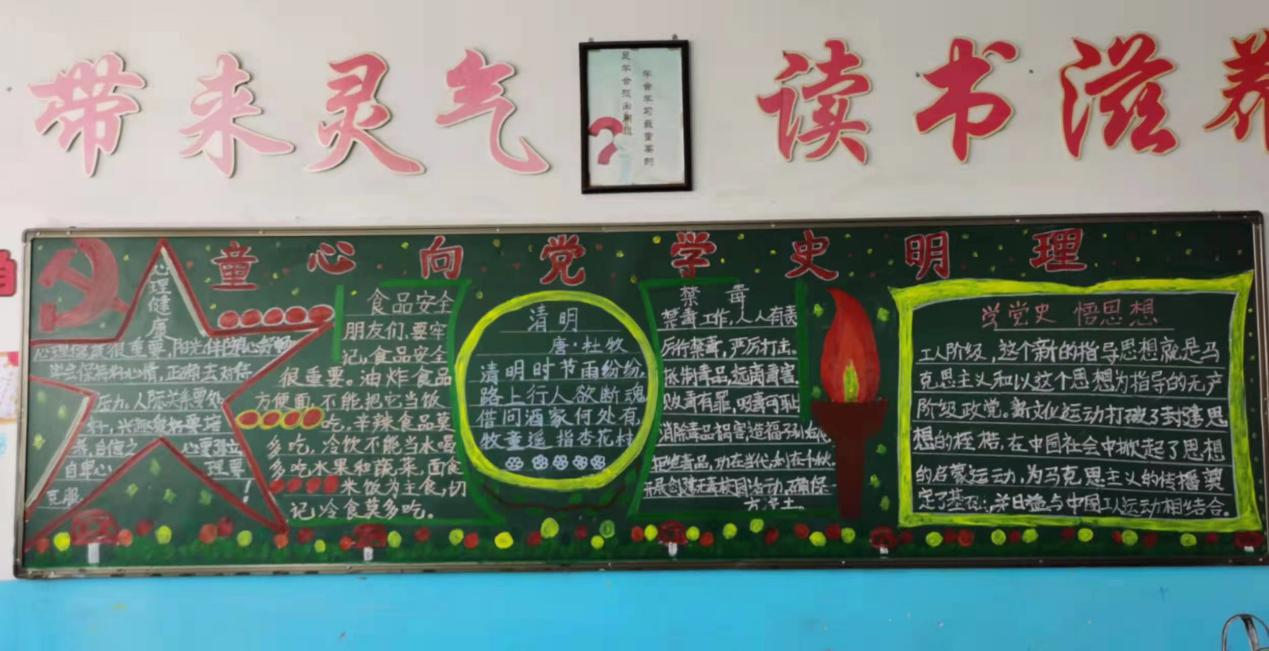 带来灵气
学会学习最重要的
是学会
读书滋养
童心向党学史明理
心理健康
心理健康很重要,阳光伴随
压力,人际关系要处
好,兴趣爱好要培
养,自信之
自卑心
克服
食品安全
朋友们,要牢
记,食品安全
很重要。油炸食品
方便面,不能把它当饭
吃,辛辣食品莫
多吃,冷饮不能当水喝
多吃水果和蔬菜,面食
米饭为主食,切
记冷食莫多吃。
清明
唐:杜牧
清明时节雨纷纷,
路上行人欲断魂
借问酒家何处有
牧童遥指杏花村
禁毒
禁毒工作,人人有责
厉行禁毒,严厉打击。
抵制毒品,远离毒害
贩毒有罪,吸毒可耻
消除毒品祸害,造福子孙后代
拒绝毒品,功在当代,利在千秋
开展创建无毒校园活动,确保一
方净土。
学党史 悟思想
工人阶级,这个新的指导思想就是马
克思主义和以这个思想为指导的无产
阶级政党。新文化运动打破了封建思
想的桎梏,在中国社会中掀起了思想
的启蒙运动,为马克思主义的传播奠
定了基石;并日益与中国工人运动相结合。